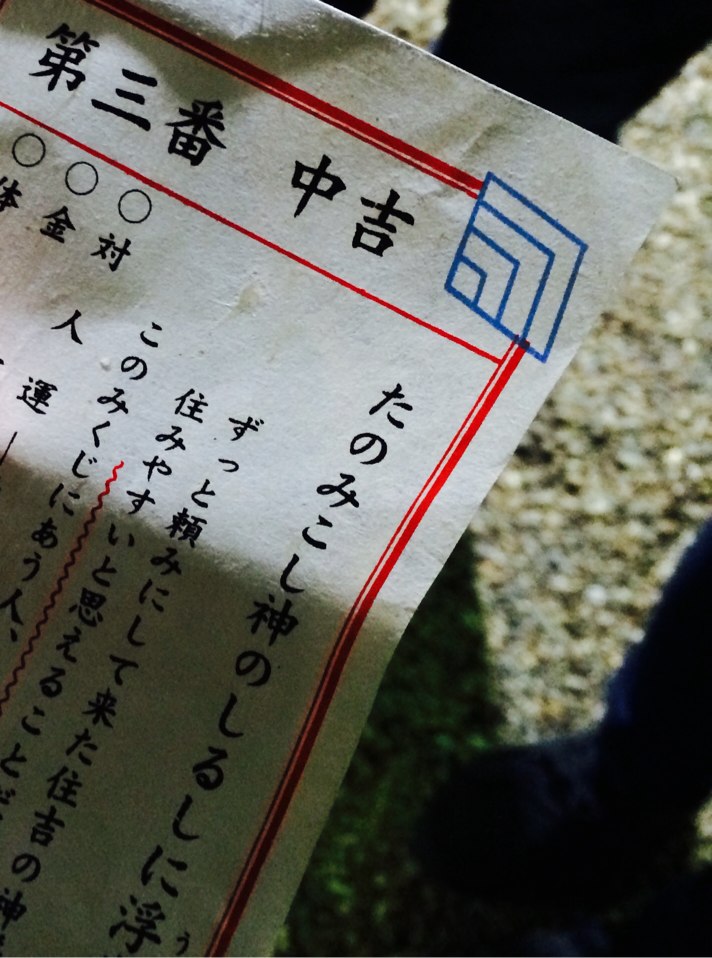 第三番 中吉
たのみこし神のしるしに浮
ずっと頼みにして来た住吉の神
住みやすいと思えることだ
このみくじにあう人、
○対人
○金運
○体